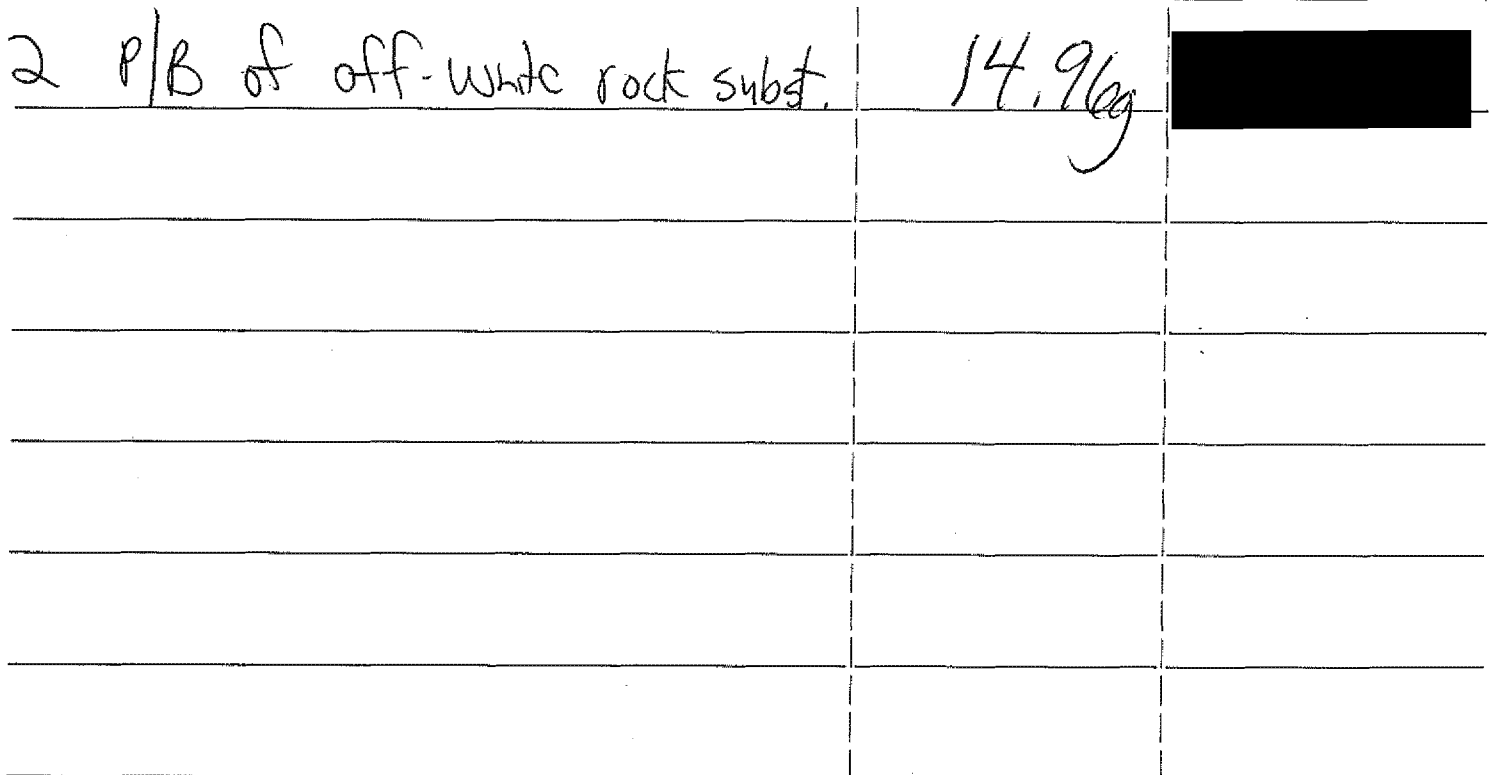 2 P/B of off-white rock subst. 14.96g